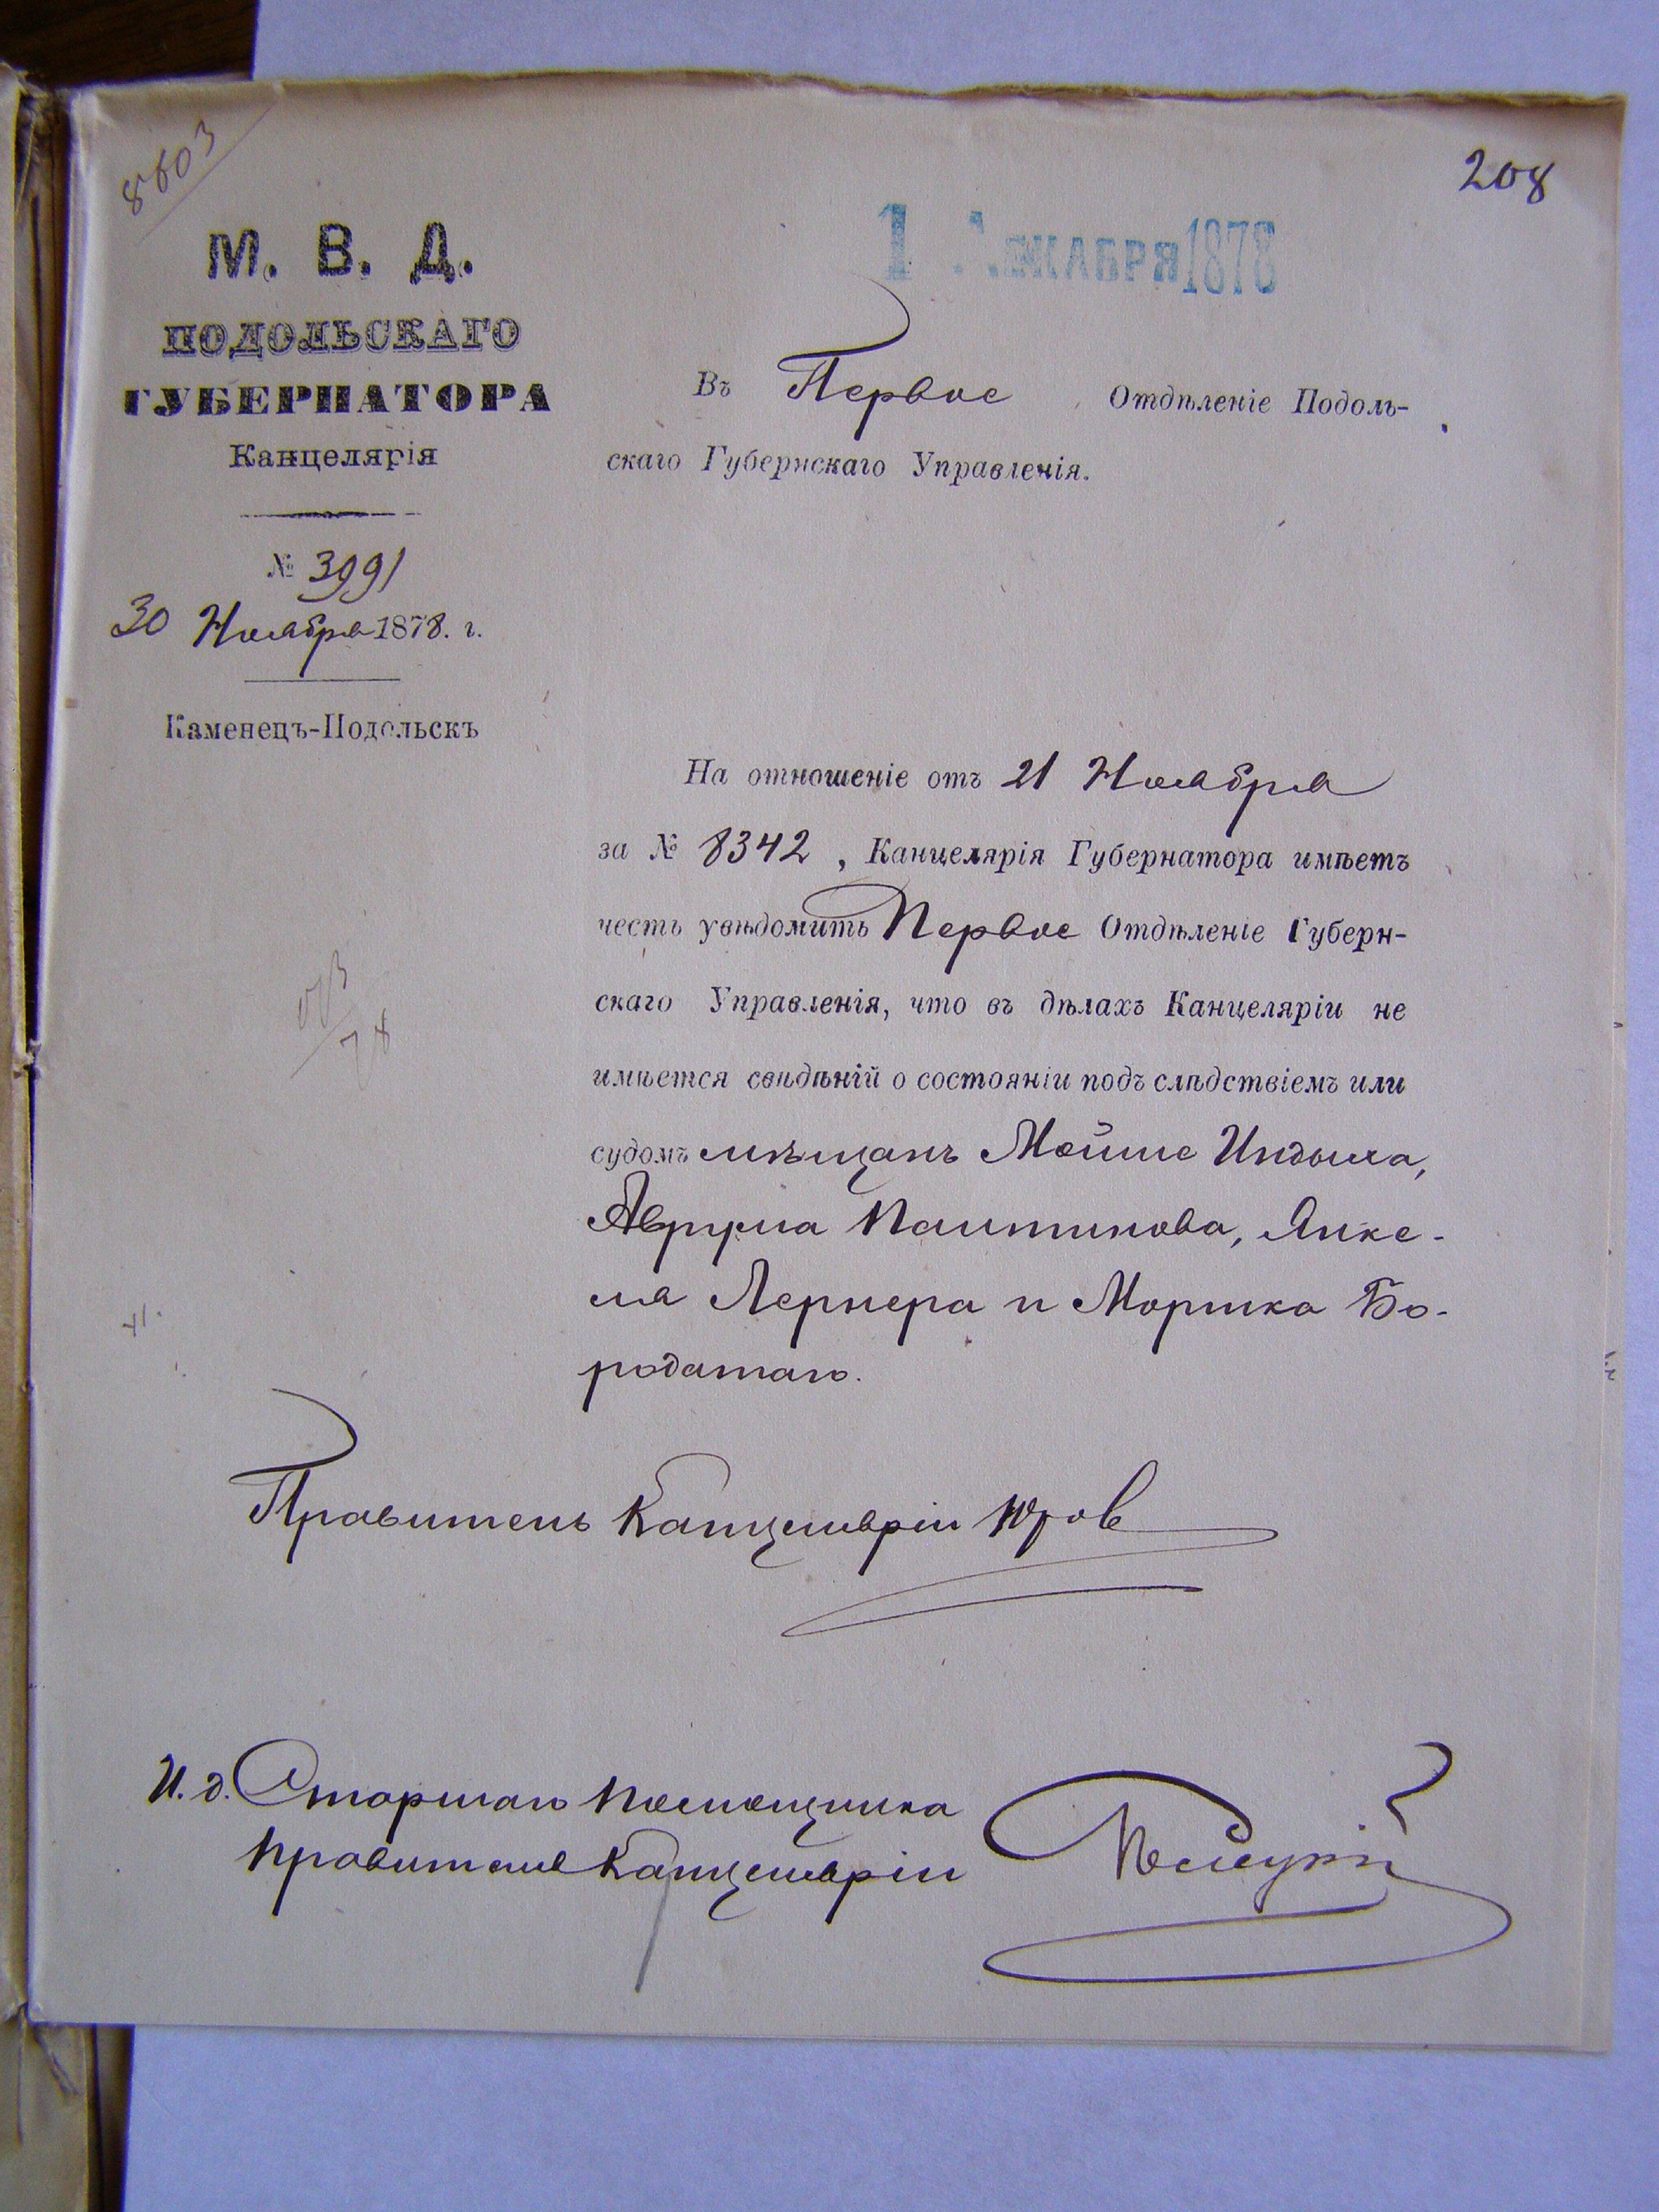 8603
208
М. В. Д.
ПОДОЛЬСКАГО
ГУБЕРНАТОРА
Канцелярія
№ 3991
30 Ноября 1878. г.
Каменецъ-Подольскъ
1 ДЕКАБРЯ 1878
Въ Первое Отдѣленіе Подоль-
скаго Губернскаго Управленія.
На отношеніе отъ 21 Ноября
за № 8342, Канцелярія Губернатора имѣетъ
честь увѣдомить Первое Отдѣленіе Губерн-
скаго Управленія, что въ дѣлахъ Канцеляріи не
имѣется свѣдѣній о состояніи подъ слѣдствіемъ или
судомъ мѣщанъ Мойше Индыка,
Аврума Паштинова, Янке-
ля Лернера и Моршка Бо-
родатаго.
Правитель Канцеляріи
И. д. Старшаго Помощника
Правителя Канцеляріи